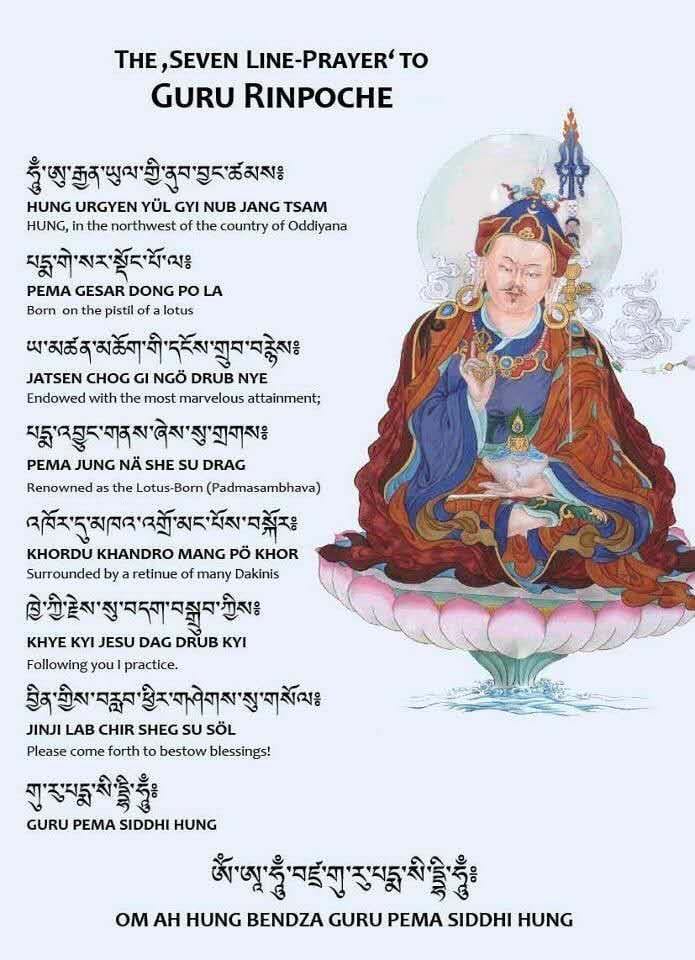 THE ‚SEVEN LINE-PRAYER‘ TO
GURU RINPOCHE
ཧཱུྃ་ཨུ་རྒྱན་ཡུལ་གྱི་ནུབ་བྱང་ཚམས༔
HUNG URGYEN YÜL GYI NUB JANG TSAM
HUNG, in the northwest of the country of Oddiyana
པདྨ་གེ་སར་སྡོང་པོ་ལ༔
PEMA GESAR DONG PO LA
Born on the pistil of a lotus
ཡ་མཚན་མཆོག་གི་དངོས་གྲུབ་བརྙེས༔
JATSEN CHOG GI NGÖ DRUB NYE
Endowed with the most marvelous attainment;
པདྨ་འབྱུང་གནས་ཞེས་སུ་གྲགས༔
PEMA JUNG NÄ SHE SU DRAG
Renowned as the Lotus-Born (Padmasambhava)
འཁོར་དུ་མཁའ་འགྲོ་མང་པོས་བསྐོར༔
KHORDU KHANDRO MANG PÖ KHOR
Surrounded by a retinue of many Dakinis
ཁྱེ་ཀྱི་རྗེས་སུ་བདག་བསྒྲུབ་ཀྱིས༔
KHYE KYI JESU DAG DRUB KYI
Following you I practice.
བྱིན་གྱིས་བརླབ་ཕྱིར་གཤེགས་སུ་གསོལ༔
JINJI LAB CHIR SHEG SU SÖL
Please come forth to bestow blessings!
གུ་རུ་པདྨ་སི་དྡྷི་ཧཱུྃ༔
GURU PEMA SIDDHI HUNG
ཨོཾ་ཨཱཿ་ཧཱུྃ་བཛྲ་གུ་རུ་པདྨ་སི་དྡྷི་ཧཱུྃ༔
OM AH HUNG BENDZA GURU PEMA SIDDHI HUNG